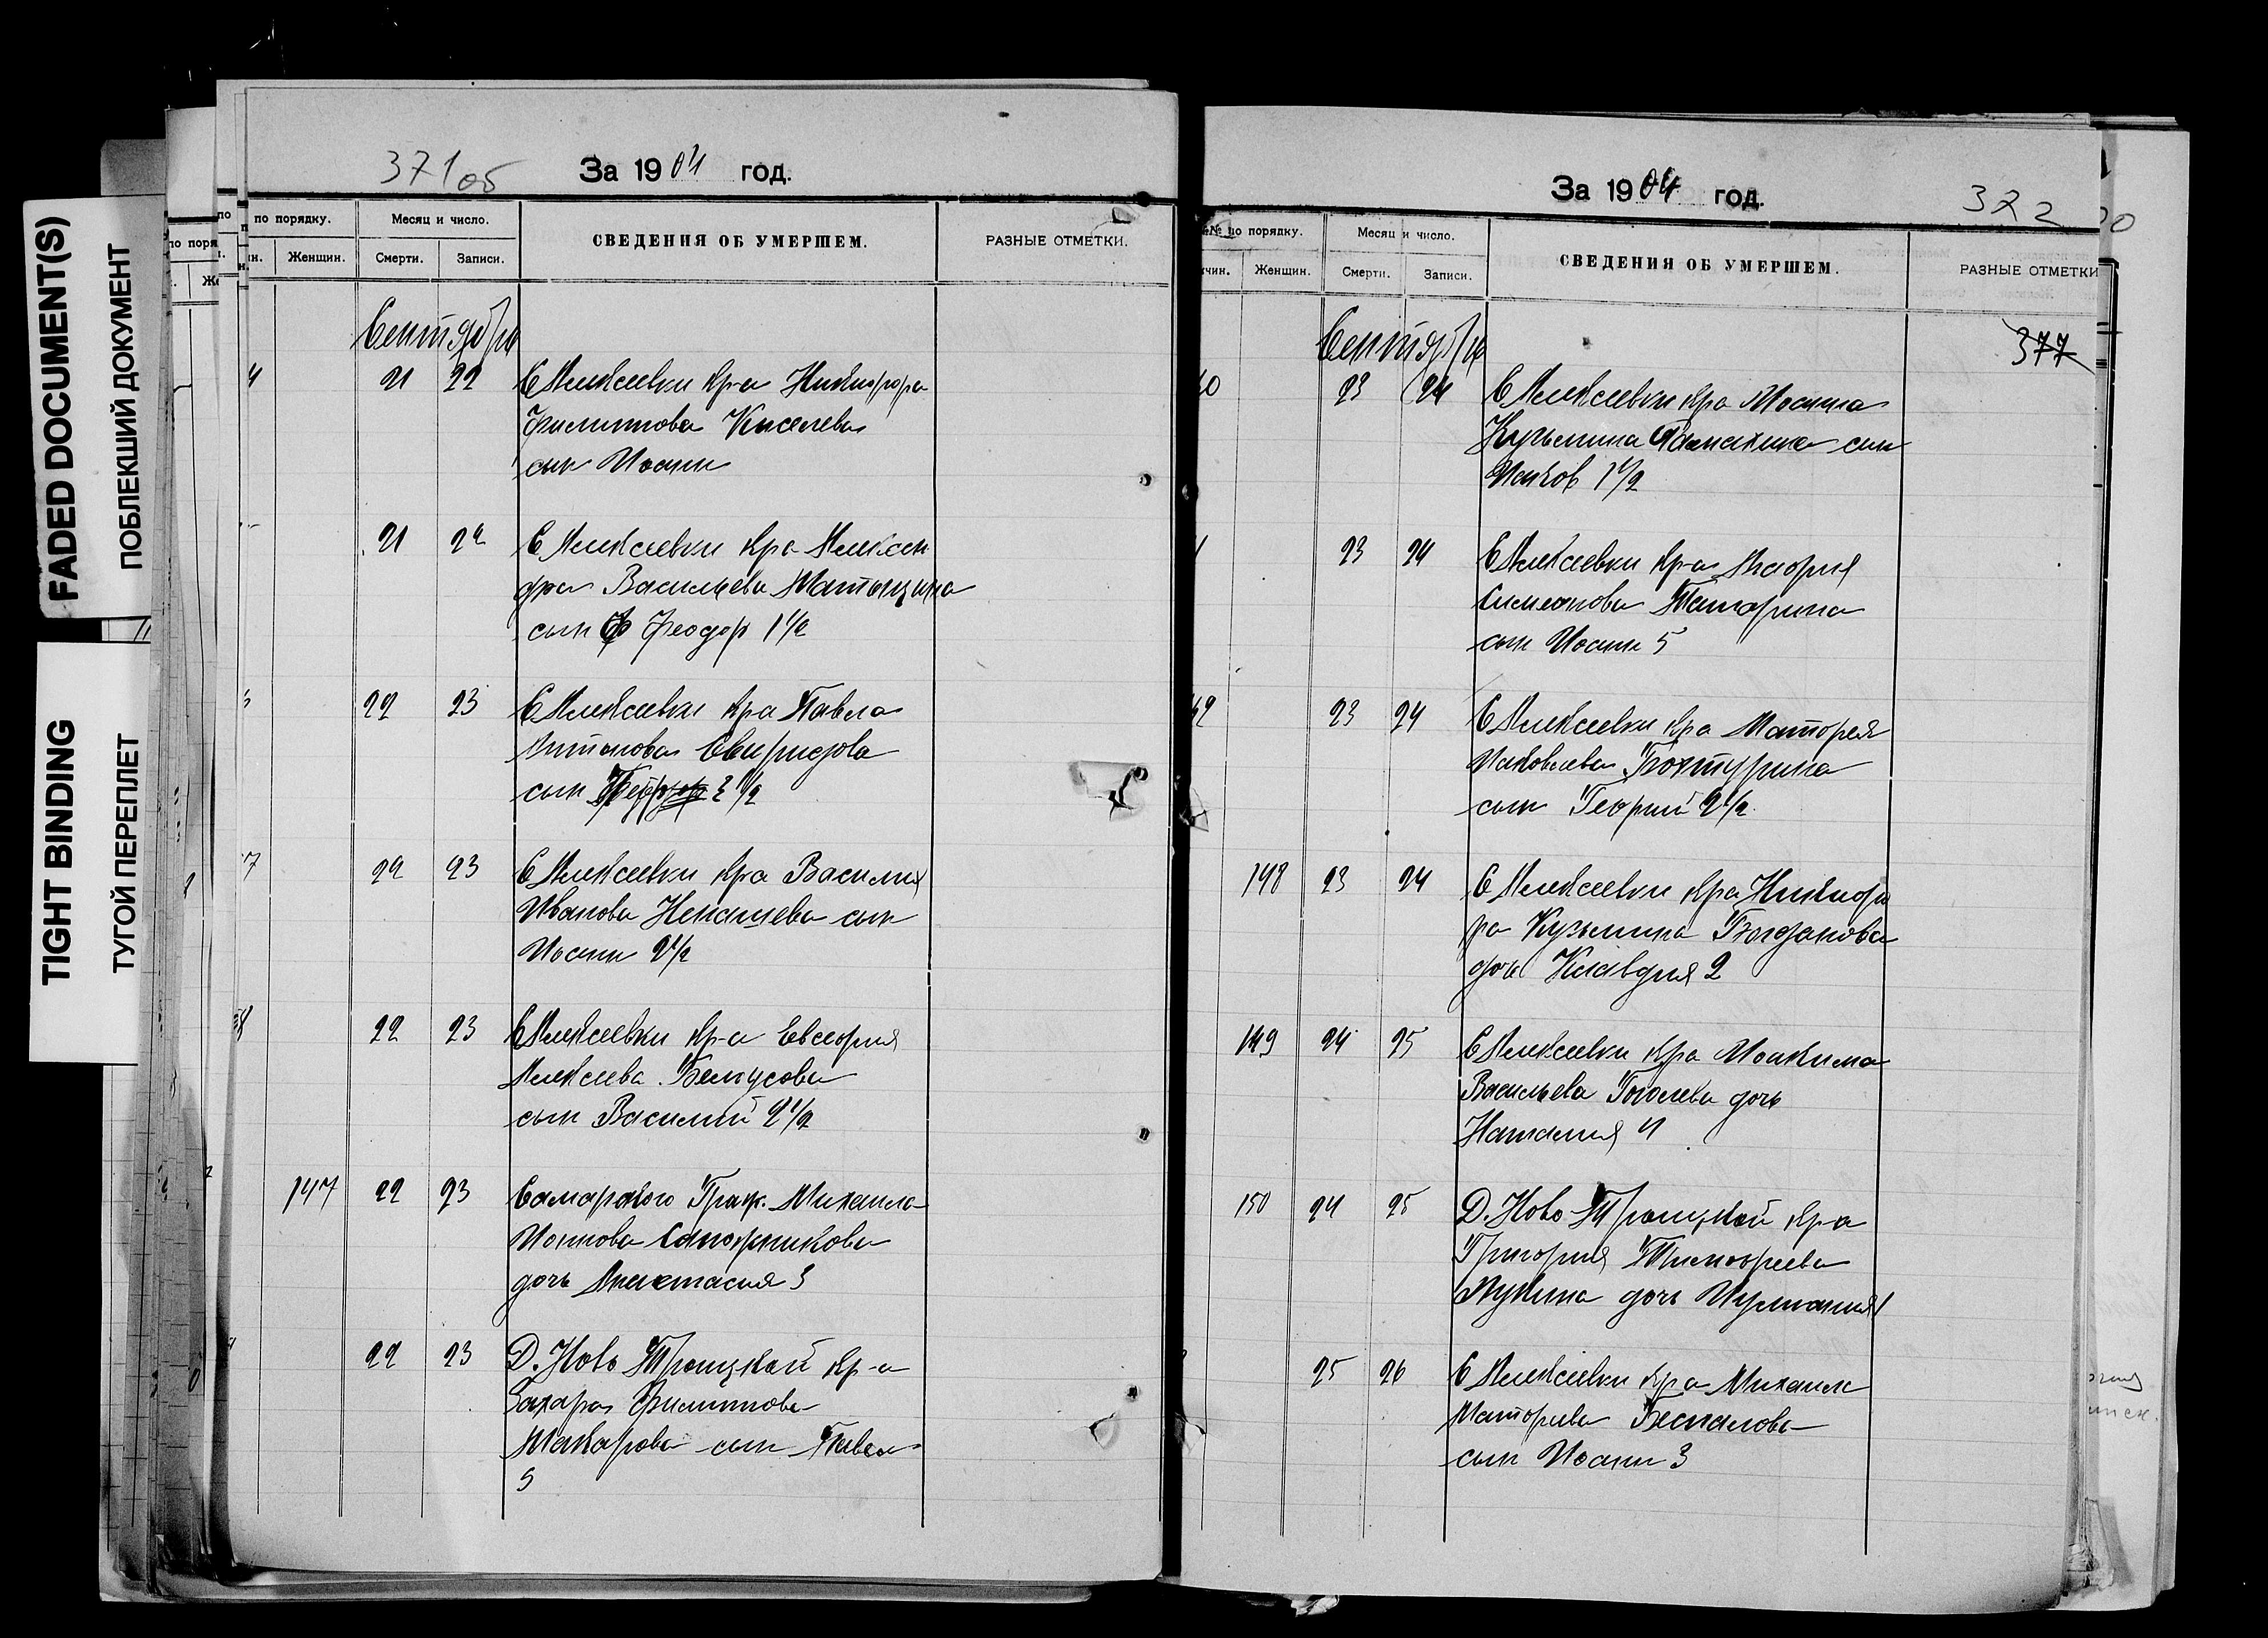 FADED DOCUMENT(S)
ПОБЛЕКШИЙ ДОКУМЕНТ
TIGHT BINDING
ТУГОЙ ПЕРЕПЛЕТ
371об
За 1904 год.
по порядку.
Месяц и число.
СВЕДЕНИЯ ОБ УМЕРШЕМ.
РАЗНЫЕ ОТМЕТКИ.
Женщин.
Смерти.
Записи.
Сентябрь
21 22 С Алексеевки кр-а Никифора
Филиппова Киселева
сын Иоанн
21 22 С Алексеевки кр-а Алексан
дра Васильева Матынцина
сын Феодор 1 1/2
22 23 С Алексеевки кра Павла
Антонова Свиридова
сын
7 22 23 С Алексеевки кра Василия
Иванова Ненашева сын
Иоанн 2 1/2
22 23 С Алексеевки кр-а Евсевия
Алексеева Белоусова
сын Василий 2 1/2
147 22 23 Самарского Граж. Михаила
Иоаннова Сапожникова
дочь Анастасия 3
22 23 Д. Ново Троицкой кр-а
Захара Филиппова
Макарова сын Павел
5
За 1904 год.
322
№№ по порядку.
Месяц и число.
СВЕДЕНИЯ ОБ УМЕРШЕМ.
РАЗНЫЕ ОТМЕТКИ
Женщин.
Смерти.
Записи.
Сентябрь
377
23 24 С Алексеевки кра
Кузьмина сын
Иаков 1 1/2
23 24 С Алексеевки кр-а
Симеонова Татарина
сын Иоанн 5
23 24 С Алексеевки кра Матфея
Иаковлева Бахтурина
сын Георгий 2 1/2
148 23 24 С Алексеевки кра Никифо
ра Кузьмина Богданова
дочь Клавдия 2
149 24 25 С Алексеевки кра Иоакима
Васильева Гоголева дочь
Наталия 4
150 24 25 Д. Ново Троицкой кр-а
Григория Тимофеева
Лукина дочь Иулиания 1
25 26 С Алексеевки кр-а Михаила
Матфеева Беспалова
сын Иоанн 3